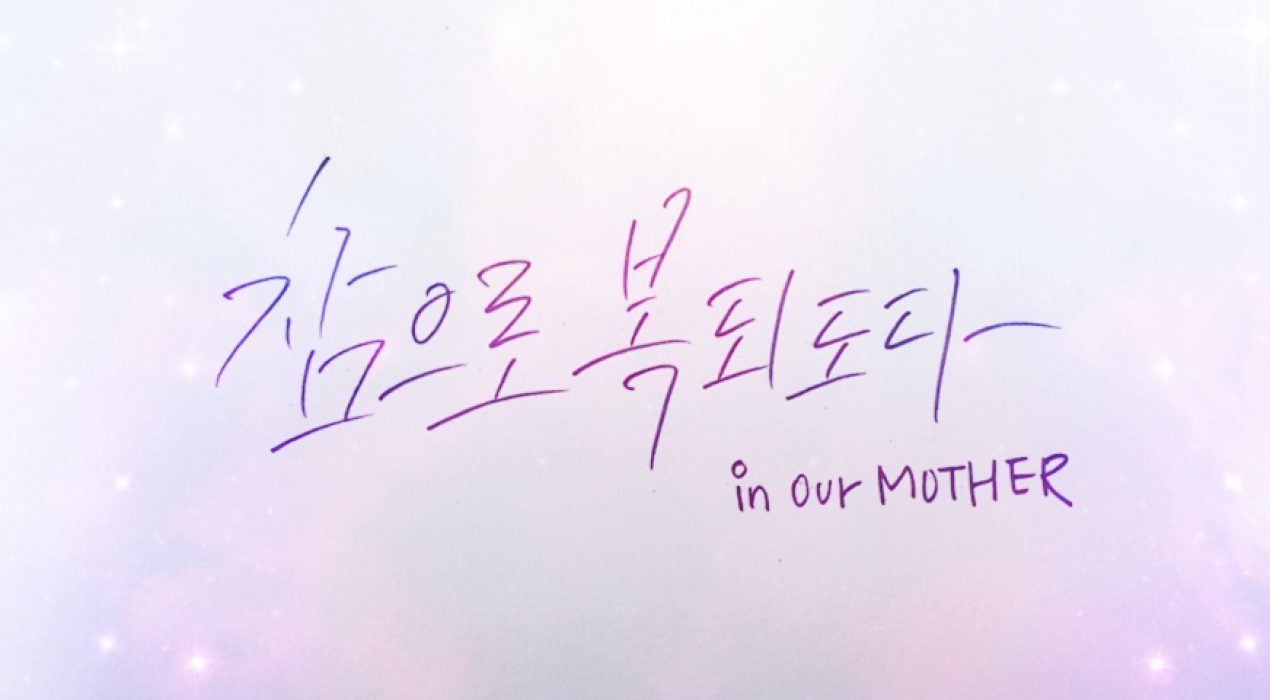 참으로 복되도다
in our MOTHER